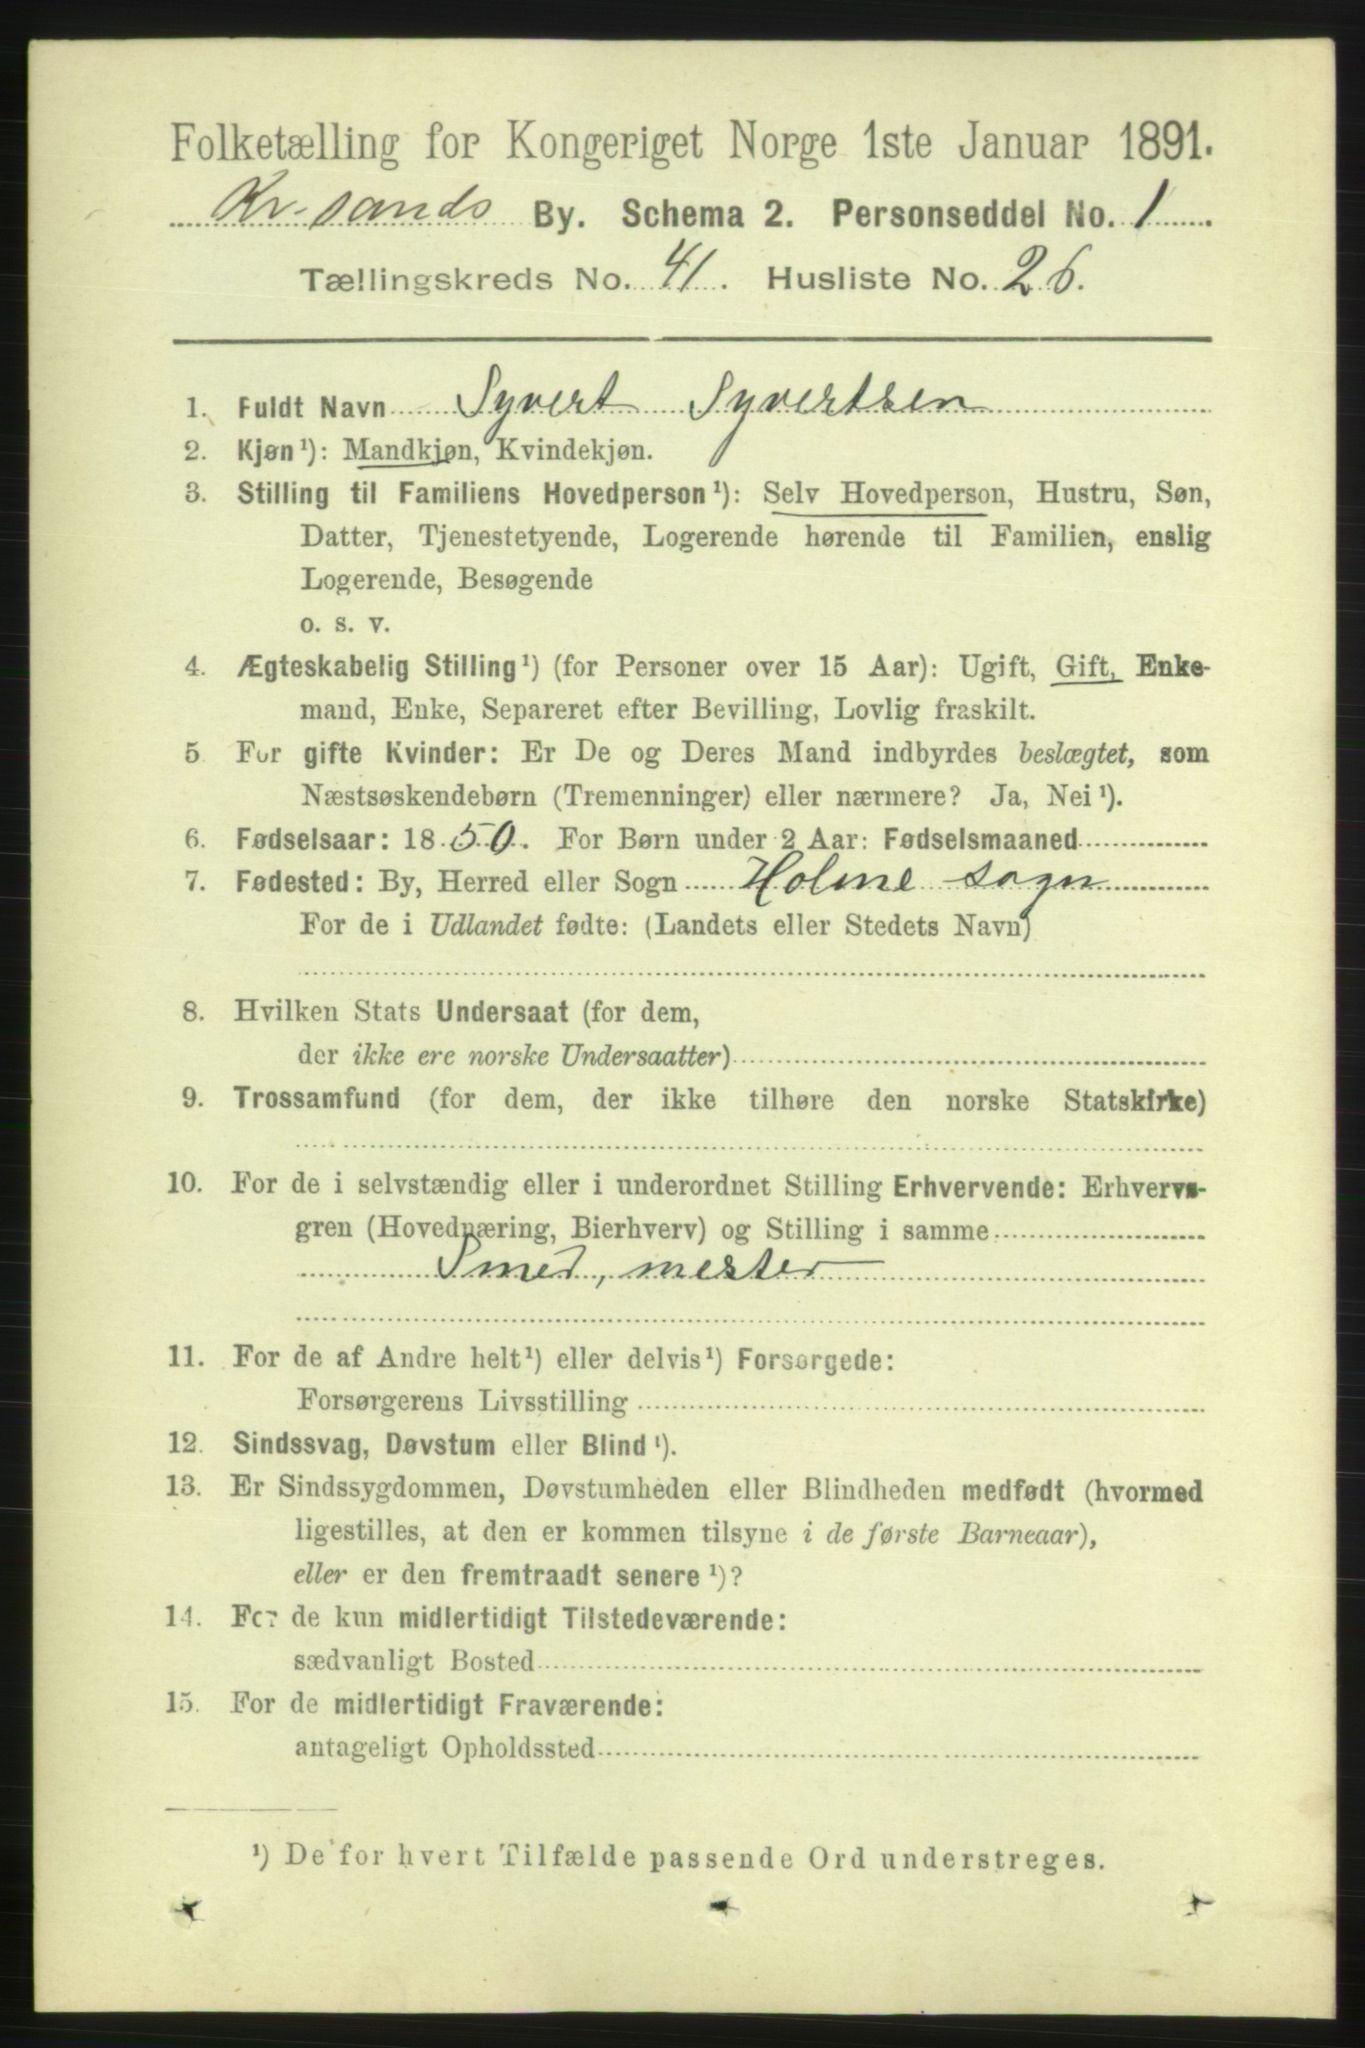 Folketælling for Kongeriget Norge 1ste Januar 1891.
Kr.sands By. Schema 2. Personseddel No. 1
Tællingskreds No. 41. Husliste No. 26.
1. Fuldt Navn Syvert Syvertsen
2. Kjøn¹): Mandkjøn, Kvindekjøn.
3. Stilling til Familiens Hovedperson¹): Selv Hovedperson, Hustru, Søn,
Datter, Tjenestetyende, Logerende hørende til Familien, enslig
Logerende, Besøgende
o. s. v.
4. Ægteskabelig Stilling¹) (for Personer over 15 Aar): Ugift, Gift, Enke-
mand, Enke, Separeret efter Bevilling, Lovlig fraskilt.
5 For gifte Kvinder: Er De og Deres Mand indbyrdes beslægtet, som
Næstsøskendebørn (Tremenninger) eller nærmere? Ja, Nei¹).
6. Fødselsaar: 1850. For Børn under 2 Aar: Fødselsmaaned
7. Fødested: By, Herred eller Sogn Holme sogn
For de i Udlandet fødte: (Landets eller Stedets Navn)
8. Hvilken Stats Undersaat (for dem,
der ikke ere norske Undersaatter)
9. Trossamfund (for dem, der ikke tilhøre den norske Statskirke)
10. For de i selvstændig eller i underordnet Stilling Erhvervende: Erhvervs-
gren (Hovednæring, Bierhverv) og Stilling i samme
Smed, mester
11. For de af Andre helt¹) eller delvis¹) Forsørgede:
Forsørgerens Livsstilling
12. Sindssvag, Døvstum eller Blind¹).
13. Er Sindssygdommen, Døvstumheden eller Blindheden medfødt (hvormed
ligestilles, at den er kommen tilsyne i de første Barneaar),
eller er den fremtraadt senere¹)?
14. For de kun midlertidigt Tilstedeværende:
sædvanligt Bosted
15. For de midlertidigt Fraværende:
antageligt Opholdssted
¹) De for hvert Tilfælde passende Ord understreges.